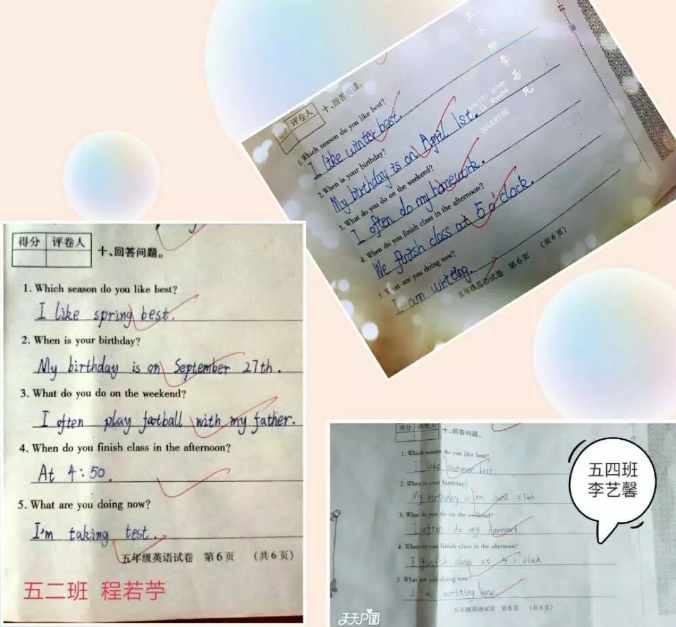 得分 评卷人
十、回答问题。
1. Which season do you like best?
I like spring best.
2. When is your birthday?
My birthday is on September 27th.
3. What do you do on the weekend?
I often play football with my father.
4. When do you finish class in the afternoon?
At 4:50.
5. What are you doing now?
I'm taking test.
五年级英语试卷 第6页 (共6页)
五二班 程若苧
评卷人
十、回答问题。
1. Which season do you like best?
I like winter best.
2. When is your birthday?
My birthday is on April 1st.
3. What do you do on the weekend?
I often do my homework.
4. When do you finish class in the afternoon?
We finish class at 5 o'clock.
5. What are you doing now?
I am writing.
五年级英语试卷 第6页 (共6页)
得分 评卷人
十、回答问题。
1. Which season do you like best?
I like summer best
2. When is your birthday?
My birthday is on
3. What do you do on the weekend?
I often do my
4. When do you finish class in the afternoon?
I finish class at o'clock
5. What are you doing now?
I'm writing
五年级英语试卷 第6页 (共6页)
五四班
李艺馨
天天P图